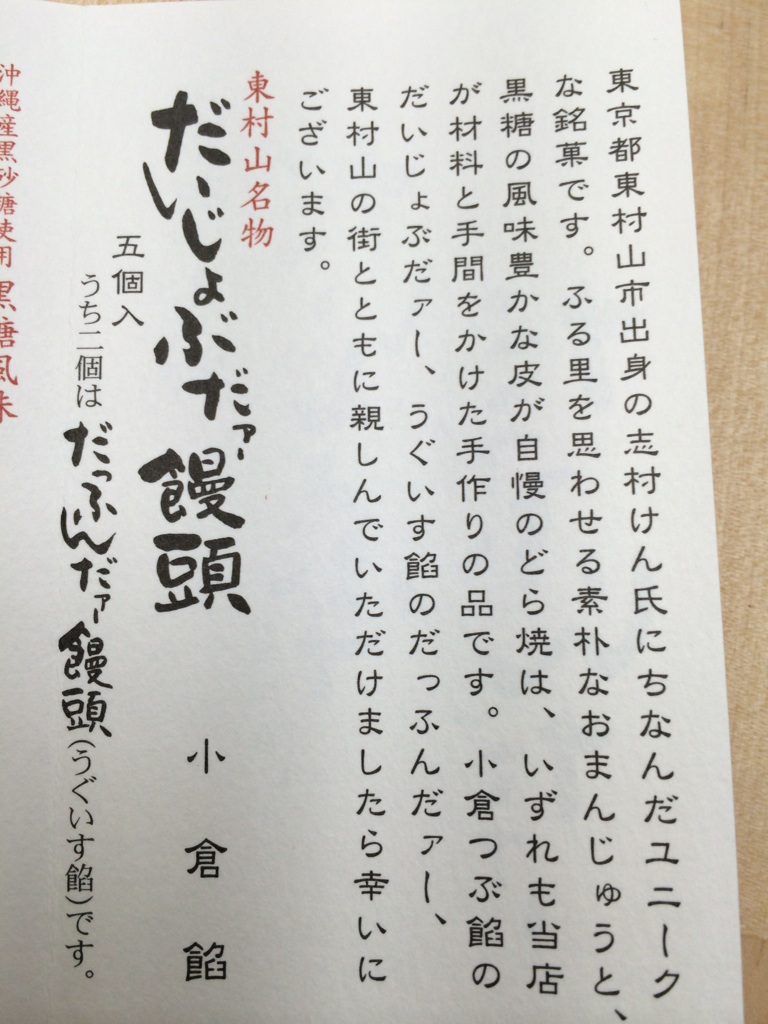 東京都東村山市出身の志村けん氏にちなんだユニーク
な銘菓です。ふる里を思わせる素朴なおまんじゅうと、
黒糖の風味豊かな皮が自慢のどら焼は、いずれも当店
が材料と手間をかけた手作りの品です。小倉つぶ餡の
だいじょぶだァー、うぐいす餡のだっふんだァー、
東村山の街とともに親しんでいただけましたら幸いに
ございます。
東村山名物
だいじょぶだァー饅頭 小倉餡
五個入
うち二個はだっふんだァー饅頭(うぐいす餡)です。
沖縄産黒砂糖使用 黒糖風味